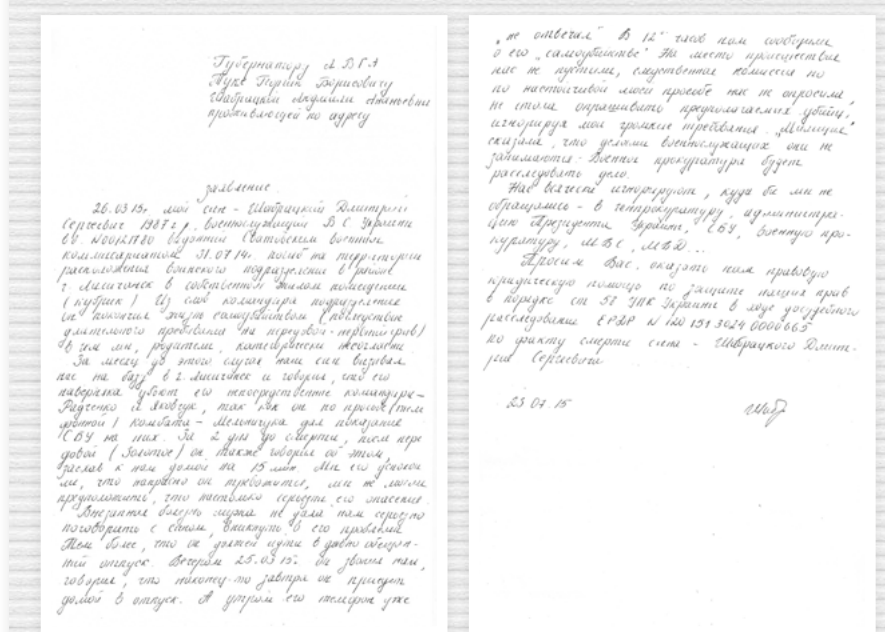 Губернатору А В Г А
Туке Георгий Борисовичу
Шабрацкой Людмилы Ананьевны
проживающей по адресу
заявление.
26.03 15г. мой сын - Шабрацкий Дмитрий
Сергеевич 1987 г., военнослужащий В С Украины
выданной Сватовским военным
комиссариатом 31.07 14г. погиб на территории
расположения воинского подразделения в районе
г. Лисичанск в собственном жилом помещении
(кубрик) Из слов командира подразделения
он покончил жизнь самоубийством (последствие
длительного пребывания на передовой - нервный срыв)
в чем мы, родители, категорически несогласны
За месяц до этого случая наш сын вызывал
нас на базу в г. Лисичанск и говорил, что его
наверняка убьют его непосредственные командиры -
Радченко и Яковчук, так как он по просьбе (
) комбата - Мельничука дал показания
СБУ на них. За 2 дня до смерти, после пере
довой (Золотое) он также говорил об этом,
заехав к нам домой на 15 мин. Мы его успокои
ли, что напрасно он тревожится, мы не могли
предположить, что настолько серьезны его опасения.
Внезапная болезнь мужа не дала нам серьезно
поговорить с сыном, вникнуть в его проблемы
Тем более, что он должен идти в давно обещан-
ный отпуск. Вечером 25.03 15г. он звонил нам,
говорил, что наконец-то завтра он приедет
домой в отпуск. А утром его телефон уже
„не отвечал" В 12 часов нам сообщили
о его „самоубийстве" На место происшествия
нас не пустили, следственная комиссия
по настойчивой моей просьбе нас не опросила,
не стала опрашивать предполагаемых убийц,
игнорируя мои громкие требования. „Милиция"
сказала, что делами военнослужащих они не
занимаются. Военная прокуратура будет
расследовать дело.
Нас всячески игнорируют, куда бы мы не
обращались - в генпрокуратуру, администра-
цию Президента Украины, СБУ, военную про-
куратуру, МВС, МВД...
Просим Вас, оказать нам правовую
юридическую помощь по защите наших прав
в порядке ст 56 УПК Украины в ходе досудебного
расследования ЕРДР
по факту смерти сына - Шабрацкого Дмит-
рия Сергеевича
23 07. 15